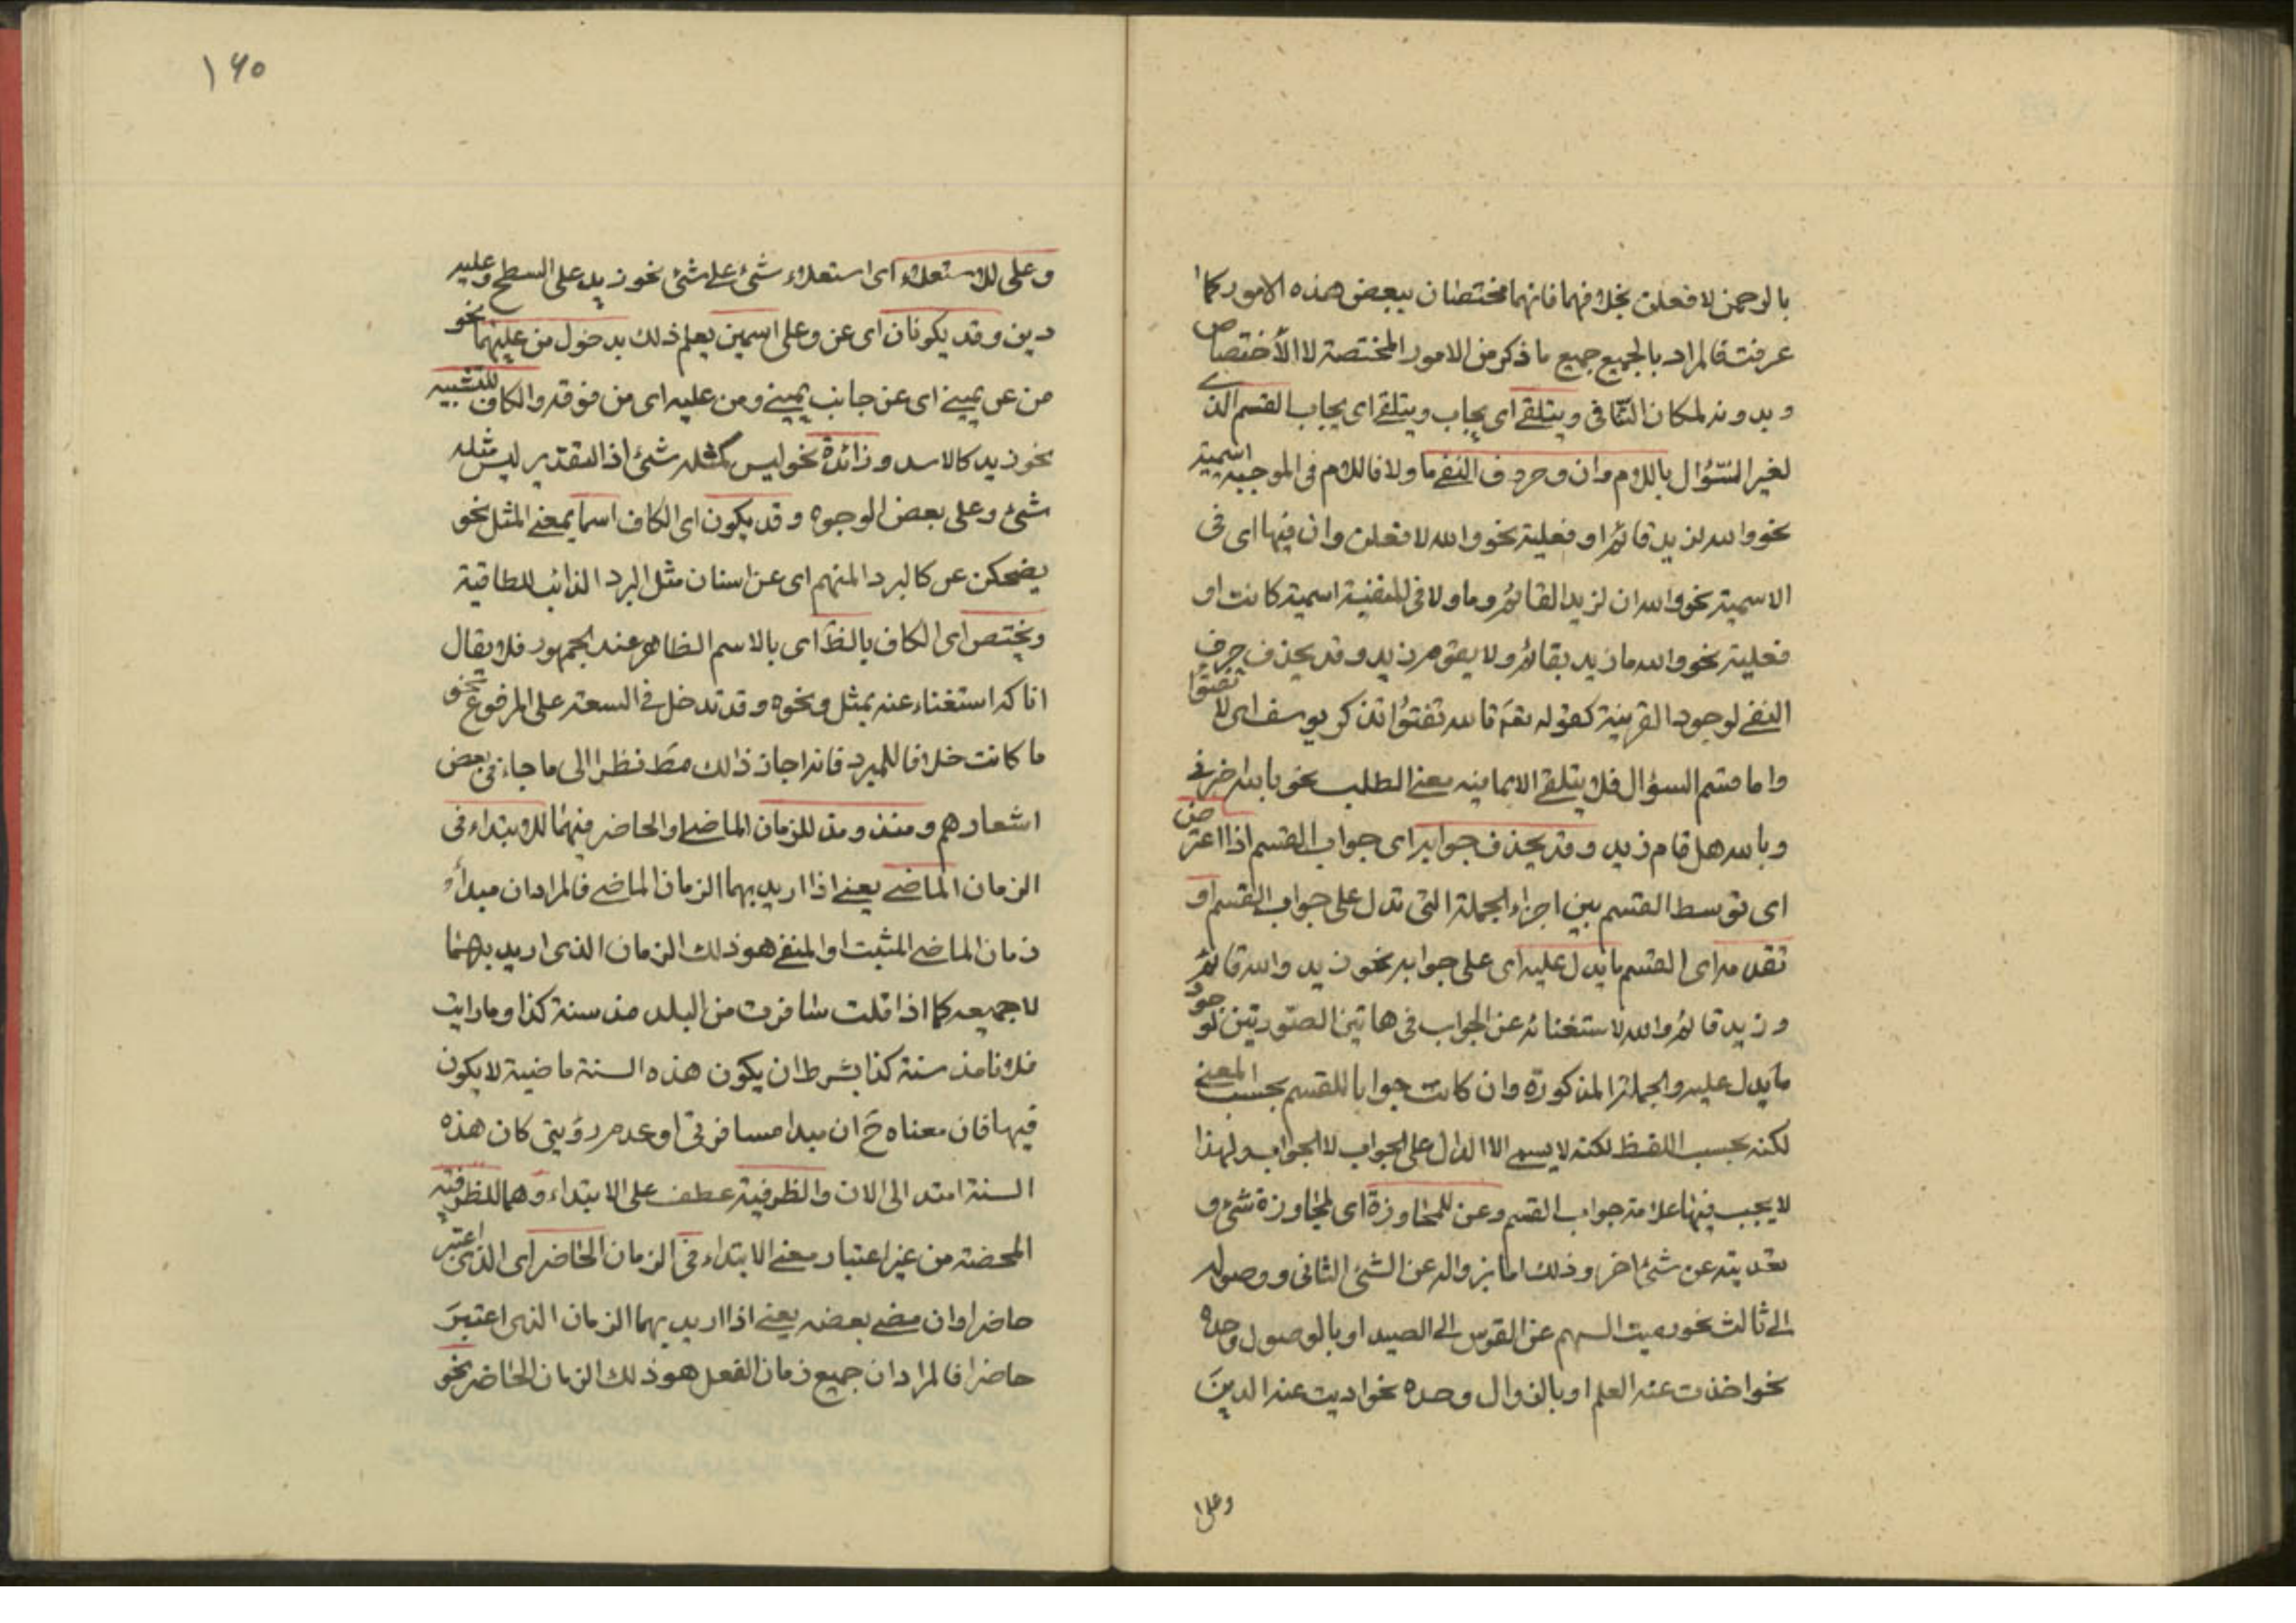 بالرحمن لافعلن بخلافهما فانهما مختصان ببعض هذه الامور كما
عرفت فالمراد بالجميع جميع ما ذكر من الامور المختصة لا الاختصاص
وبدونه لمكان التنافى ويتلقى اى يجاب ويتلقى اى يجاب القسم الذى
لغير السؤال باللام وان وحروف النفى ما ولا فاللام فى الموجبة اسمية
نحو والله لزيد قائم او فعلية نحو والله لافعلن وان فيها اى فى
الاسمية نحو والله ان لزيدا لقائم وما ولا فى المنفية اسمية كانت او
فعلية نحو والله ما زيد بقائم ولا يقوم زيد وقد يحذف حرف
النفى لوجود القرينة كقوله تعه تالله تفتؤا تذكر يوسف اى لا تفتؤا
واما قسم السؤال فلا يتلقى الا بما فيه معنى الطلب نحو بالله اخبرنى
وبالله هل قام زيد وقد يحذف جوابه اى جواب القسم اذا اعترض
اى توسط القسم بين اجزاء الجملة التى تدل على جواب القسم او
تقدمه اى القسم ما يدل عليه اى على جوابه نحو زيد والله قائم
وزيد قائم والله لاستغنائه عن الجواب فى هاتين الصورتين لوجود
ما يدل عليه والجملة المذكورة وان كانت جوابا للقسم بحسب المعنى
لكنه بحسب اللفظ لكنه لا يسمى الا الدال على الجواب لا الجواب ولهذا
لا يجب فيها علامة جواب القسم وعن للمجاوزة اى لمجاوزة شئ و
تعديته عن شئ اخر وذلك اما بزواله عن الشئ الثانى ووصوله
الى ثالث نحو رميت السهم عن القوس الى الصيد او بالوصول وحده
نحو اخذت عنه العلم او بالزوال وحده نحو اديت عنه الدين
وعلى
١٦٠
وعلى للاستعلاء اى استعلاء شئ على شئ نحو زيد على السطح وعليه
دين وقد يكونان اى عن وعلى اسمين يعلم ذلك بدخول من عليهما نحو
من عن يمينى اى عن جانب يمينى ومن عليه اى من فوقه والكاف للتشبيه
نحو زيد كالاسد وزائدة نحو ليس كمثله شئ اذ التقدير ليس مثله
شئ وعلى بعض الوجوه وقد يكون اى الكاف اسما بمعنى المثل نحو
يضحكن عن كالبرد المنهم اى عن اسنان مثل البرد الذائب للطافية
ويختص اى الكاف بالظ اى بالاسم الظاهر عند الجمهور فلا يقال
اناكه استغناء عنه بمثل ونحوه وقد تدخل فى السعة على المرفوع نحو
ما كانت خلافا للمبرد فانه اجاز ذلك مط نظرا الى ما جاء فى بعض
اشعارهم ومنذ ومذ للزمان الماضى او الحاضر فهما للابتداء فى
الزمان الماضى يعنى اذا اريد بهما الزمان الماضى فالمراد ان مبدأ و
زمان الماضى المثبت او المنفى هو ذلك الزمان الذى اريد بهما
لا جميعه كما اذا قلت سافرت من البلد مذ سنة كذا وما رايت
فلانا مذ سنة كذا بشرط ان يكون هذه السنة ماضية لا يكون
فيها فان معناه ح ان مبدا مسافرتى او عدم رؤيتى كان هذه
السنة امتد الى الان والظرفية عطف على الابتداء وهما للظرفية
المحضة من غير اعتبار معنى الابتداء فى الزمان الحاضر اى الذى اعتبر
حاضرا وان مضى بعضه يعنى اذا اريد بهما الزمان الذى اعتبر
حاضرا فالمراد ان جميع زمان الفعل هو ذلك الزمان الحاضر نحو